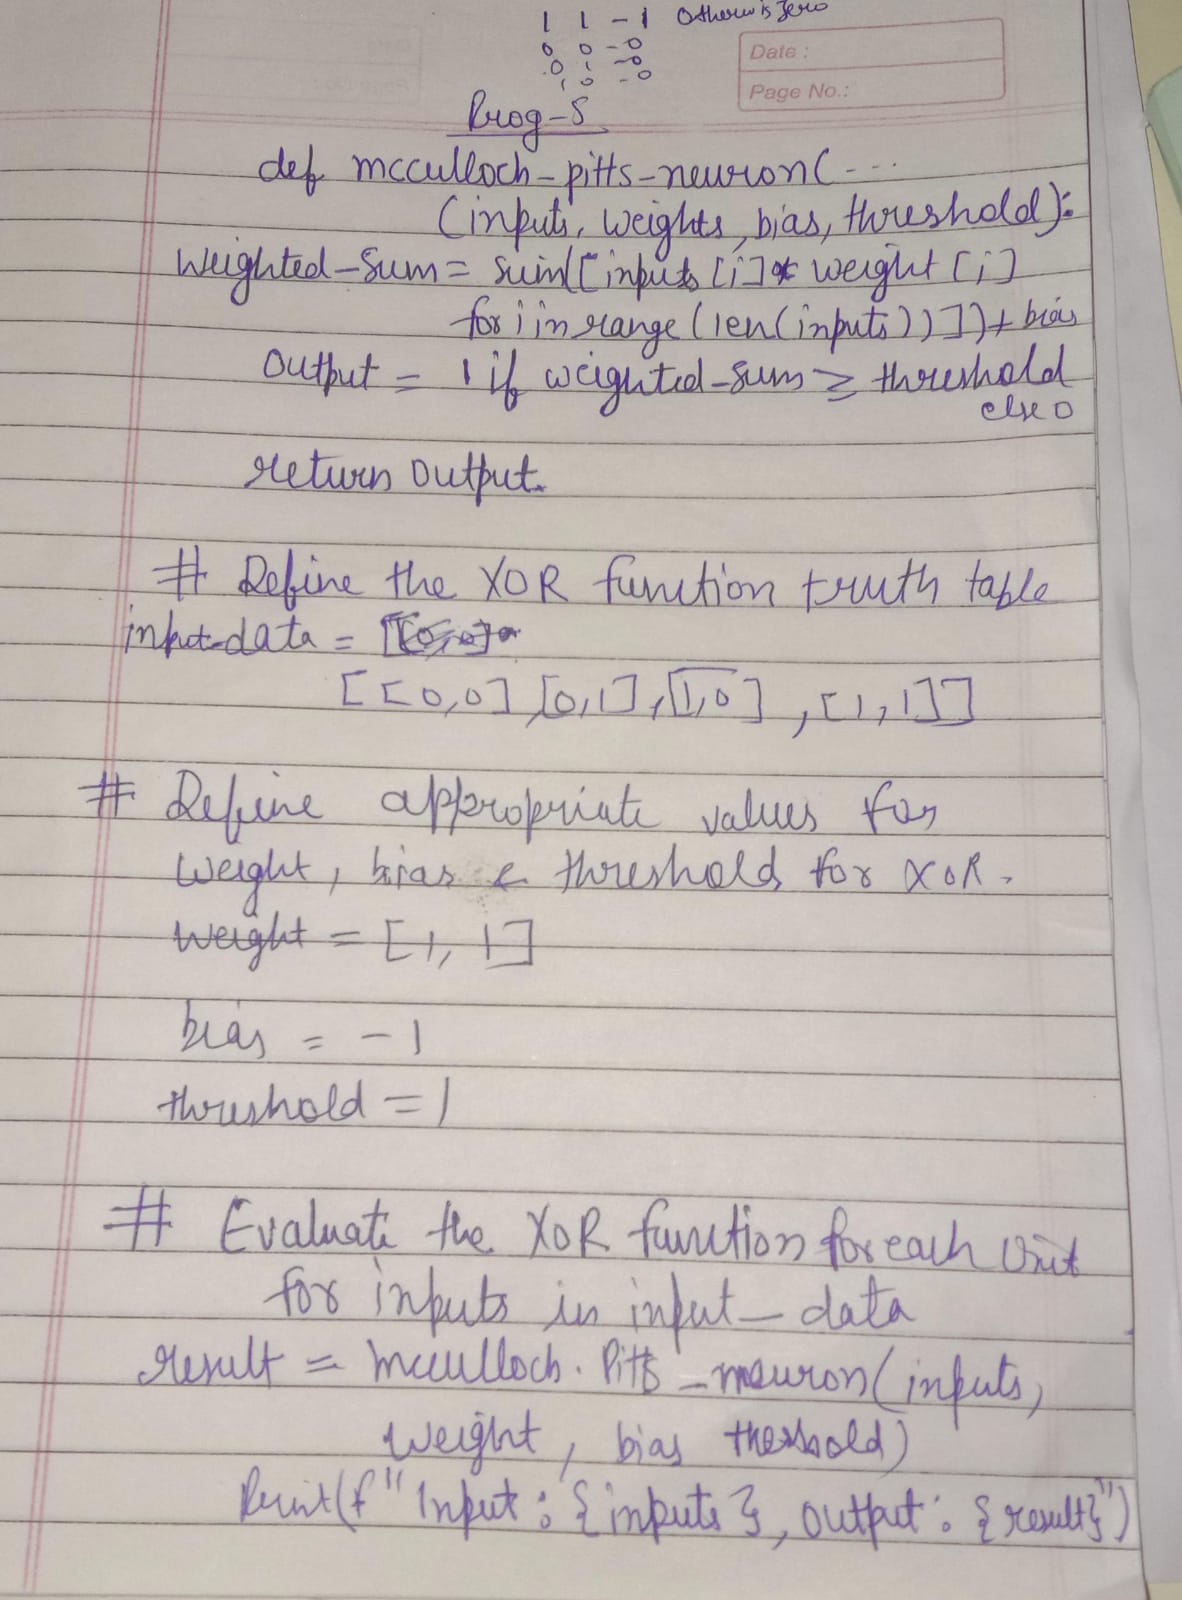 1 1 -1 Otherwis zero
0 0 -0
Date :
0 1 -0
1 0 -0
Page No.:
Prog-5
def mcculloch-pitts-neuron( ---
(inputs, weights, bias, threshold):
Weighted-Sum = sum([inputs [i] * weight [i]
for i in range (len(inputs))])+ bias
Output = 1 if weighted-sum ≥ threshold
else 0
return output.
# Define the XOR function truth table
input-data =
[[0,0] [0,1], [1,0] , [1,1]]
# Define appropriate values for
weight, bias & threshold for XOR.
weight = [1, 1]
bias = -1
threshold = 1
# Evaluate the XOR function for each Unit
for inputs in input_data
result = mcculloch. Pitts _neuron(inputs,
weight, bias threshold)
Print(f"Input : {inputs}, output : {result}")